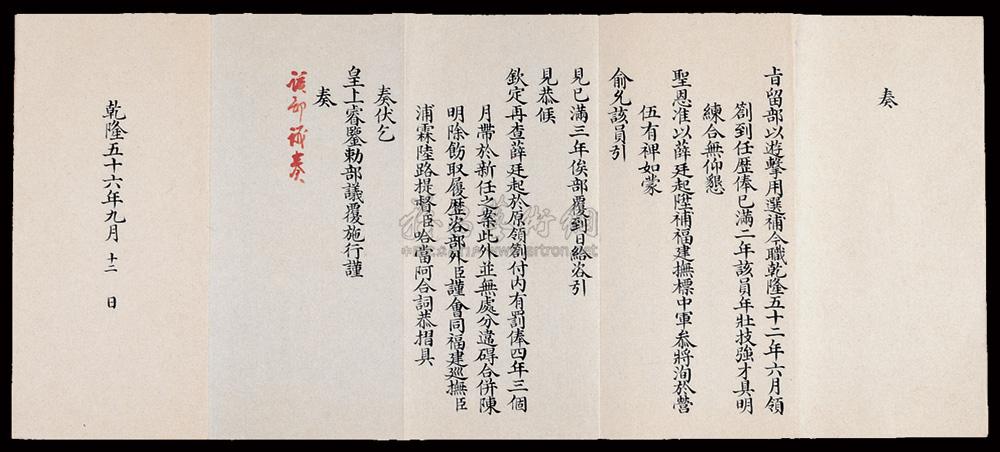 奏
旨留部以遊擊用選補今職乾隆五十二年六月領
劄到任歷俸已滿二年該員年壯技強才具明
練合無仰懇
聖恩准以薛廷起陞補福建撫標中軍叅將洵於營
伍有裨如蒙
俞允該員引
見已滿三年俟部覆到日給咨引
見恭候
欽定再查薛廷起於原領劄付內有罰俸四年三個
月帶於新任之案此外並無處分違碍合併陳
明除飭取履歷咨部外臣謹會同福建巡撫臣
浦霖陸路提督臣哈當阿合詞恭摺具
奏伏乞
皇上睿鑒勅部議覆施行謹
奏
該部議奏
乾隆五十六年九月 十二 日